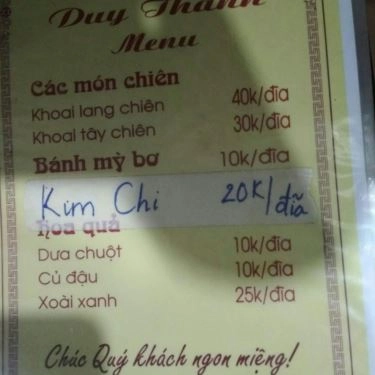 Duy Thành
Menu
Các món chiên
Khoai lang chiên 40k/đĩa
Khoai tây chiên 30k/đĩa
Bánh mỳ bơ 10k/đĩa
Kim Chi 20K/đĩa
Hoa quả
Dưa chuột 10k/đĩa
Củ đậu 10k/đĩa
Xoài xanh 25k/đĩa
Chúc Quý khách ngon miệng!